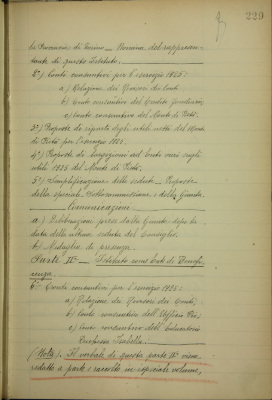 229
la Provincia di Torino – Nomina del rappresen-
tante di questo Istituto.
2°) Conto consuntivo per l'esercizio 1925:
a) Relazione dei Revisori dei Conti
b) Conto consuntivo del Credito fondiario;
c) Conto consuntivo del Monte di Pietà.
3°) Proposte di riparto degli utili netti del Monte
di Pietà per l'esercizio 1925.
4°) Proposte di erogazioni ad Enti vari sugli
utili 1925 del Monte di Pietà.
5°) Semplificazione delle sedute – Proposte
della speciale Sottocommissione e della Giunta.
Comunicazioni
a) Deliberazioni prese dalla Giunta dopo la
data della ultima seduta del Consiglio.
b) Medaglie di presenza
Parte II° – Istituto come Ente di Benefi-
cenza
6° – Conto consuntivo per l'esercizio 1925:
a) Relazione dei Revisori dei Conti;
b) Conto consuntivo dell'Ufficio Pio;
c) Conto consuntivo dell'Educatorio
Duchessa Isabella.
(Nota). Il verbale di questa parte II° viene
redatto a parte e raccolto in speciale volume,